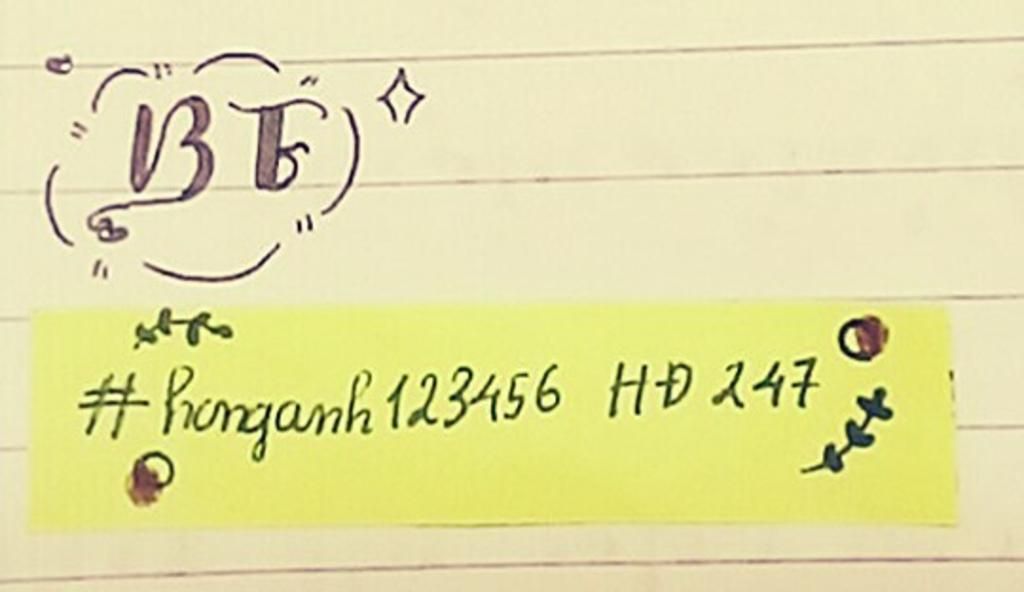 BT
#honganh123456 HĐ 247